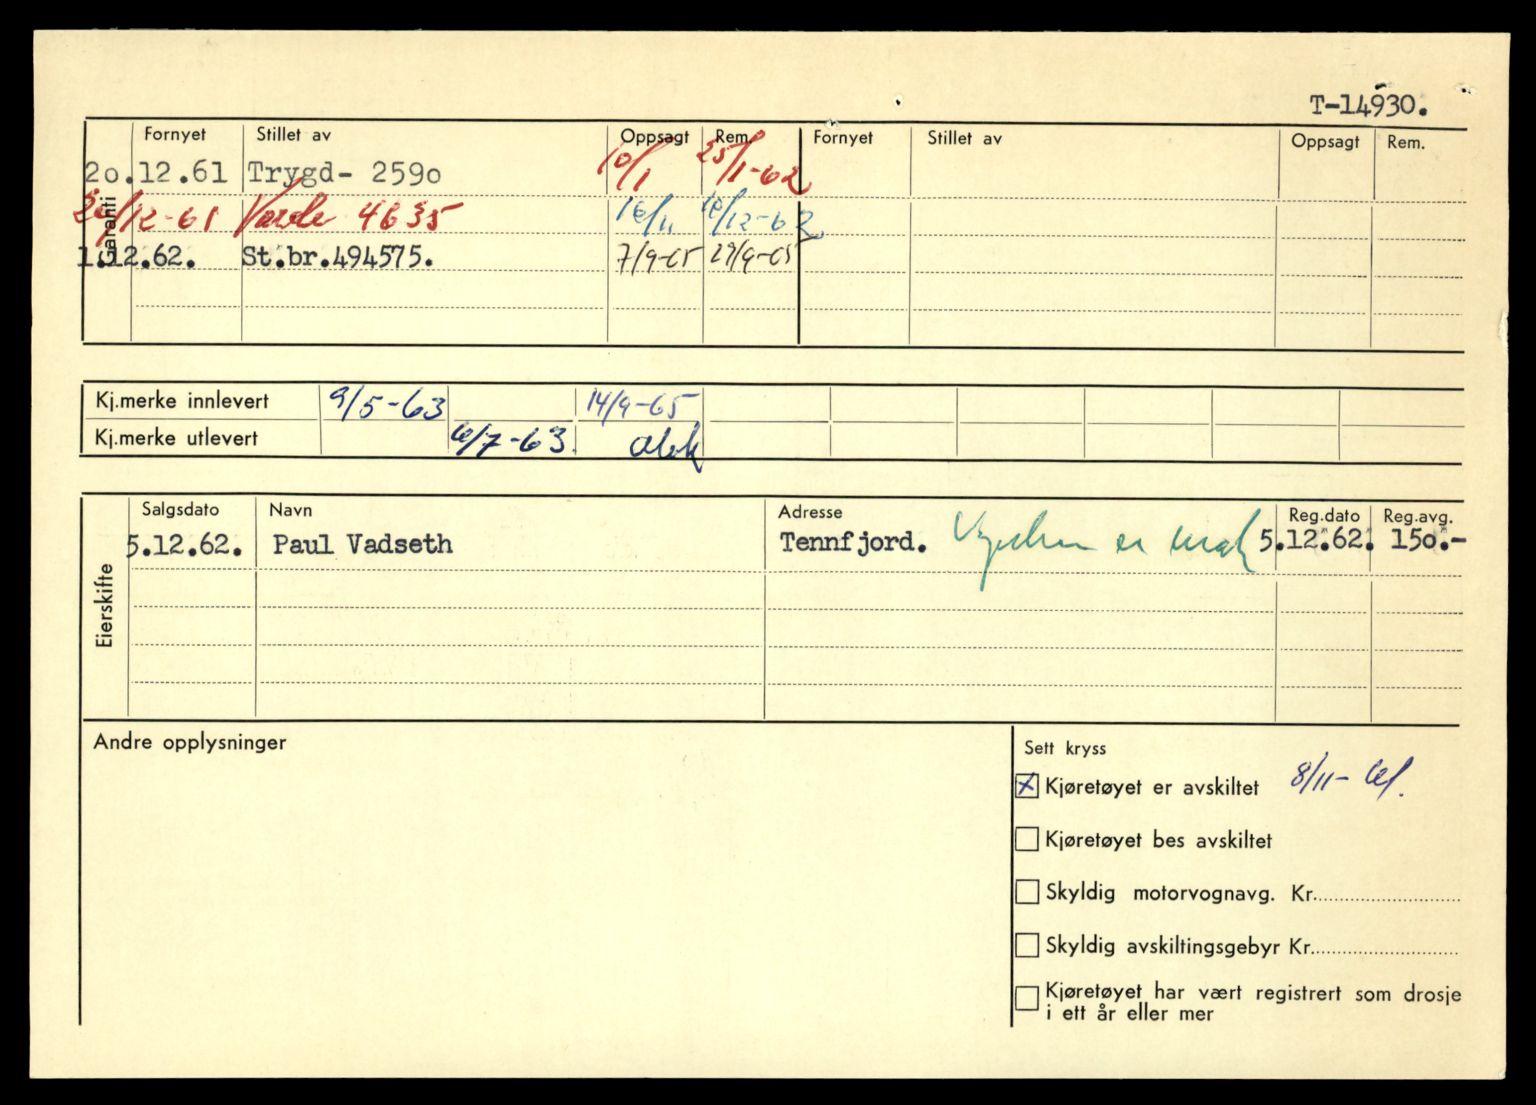 T-14930.
Garanti
Fornyet Stillet av Oppsagt Rem. Fornyet Stillet av Oppsagt Rem.
20.12.61 Trygd- 2590 10/1 25/1-62
/12-61 Varde 4635 16/11 /12-62
1.12.62. St.br.494575. 7/9-65 29/9-65
Kj.merke innlevert 9/5-63 14/9-65
Kj.merke utlevert 6/7-63.
Eierskifte
Salgsdato Navn Adresse Reg.dato Reg.avg.
5.12.62. Paul Vadseth Tennfjord. er 5.12.62. 150.-
Andre opplysninger
Sett kryss
X Kjøretøyet er avskiltet 8/11-61.
Kjøretøyet bes avskiltet
Skyldig motorvognavg. Kr.
Skyldig avskiltingsgebyr Kr.
Kjøretøyet har vært registrert som drosje
i ett år eller mer